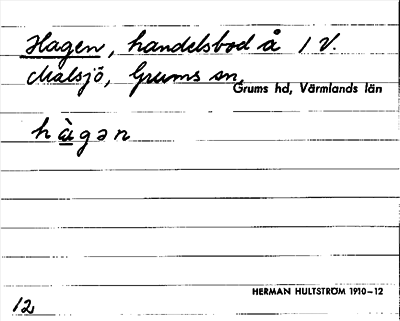 Hagen, handelsbod å 1 V.
Malsjö, Grums sn,
Grums hd, Värmlands län
hàgan
HERMAN HULTSTRÖM 1910–12
12